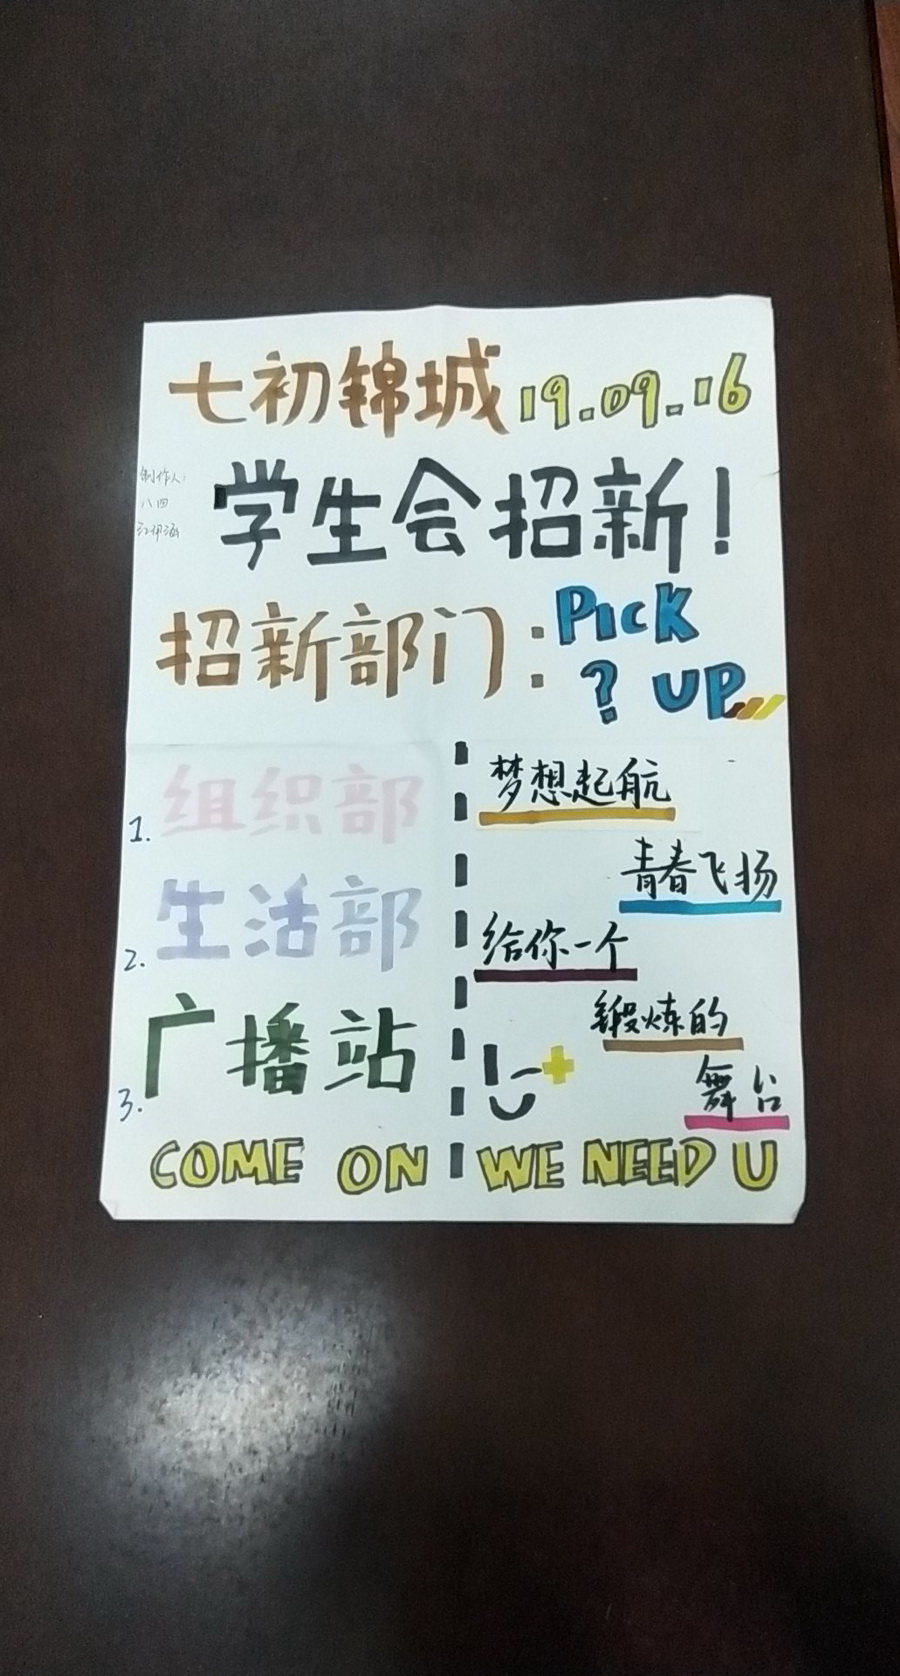 七初锦城 19.09.16
制作人:
八四
学生会招新!
招新部门: PICK
? UP
1. 组织部
2. 生活部
3. 广播站
梦想起航
青春飞扬
给你一个
锻炼的
舞台
COME ON WE NEED U